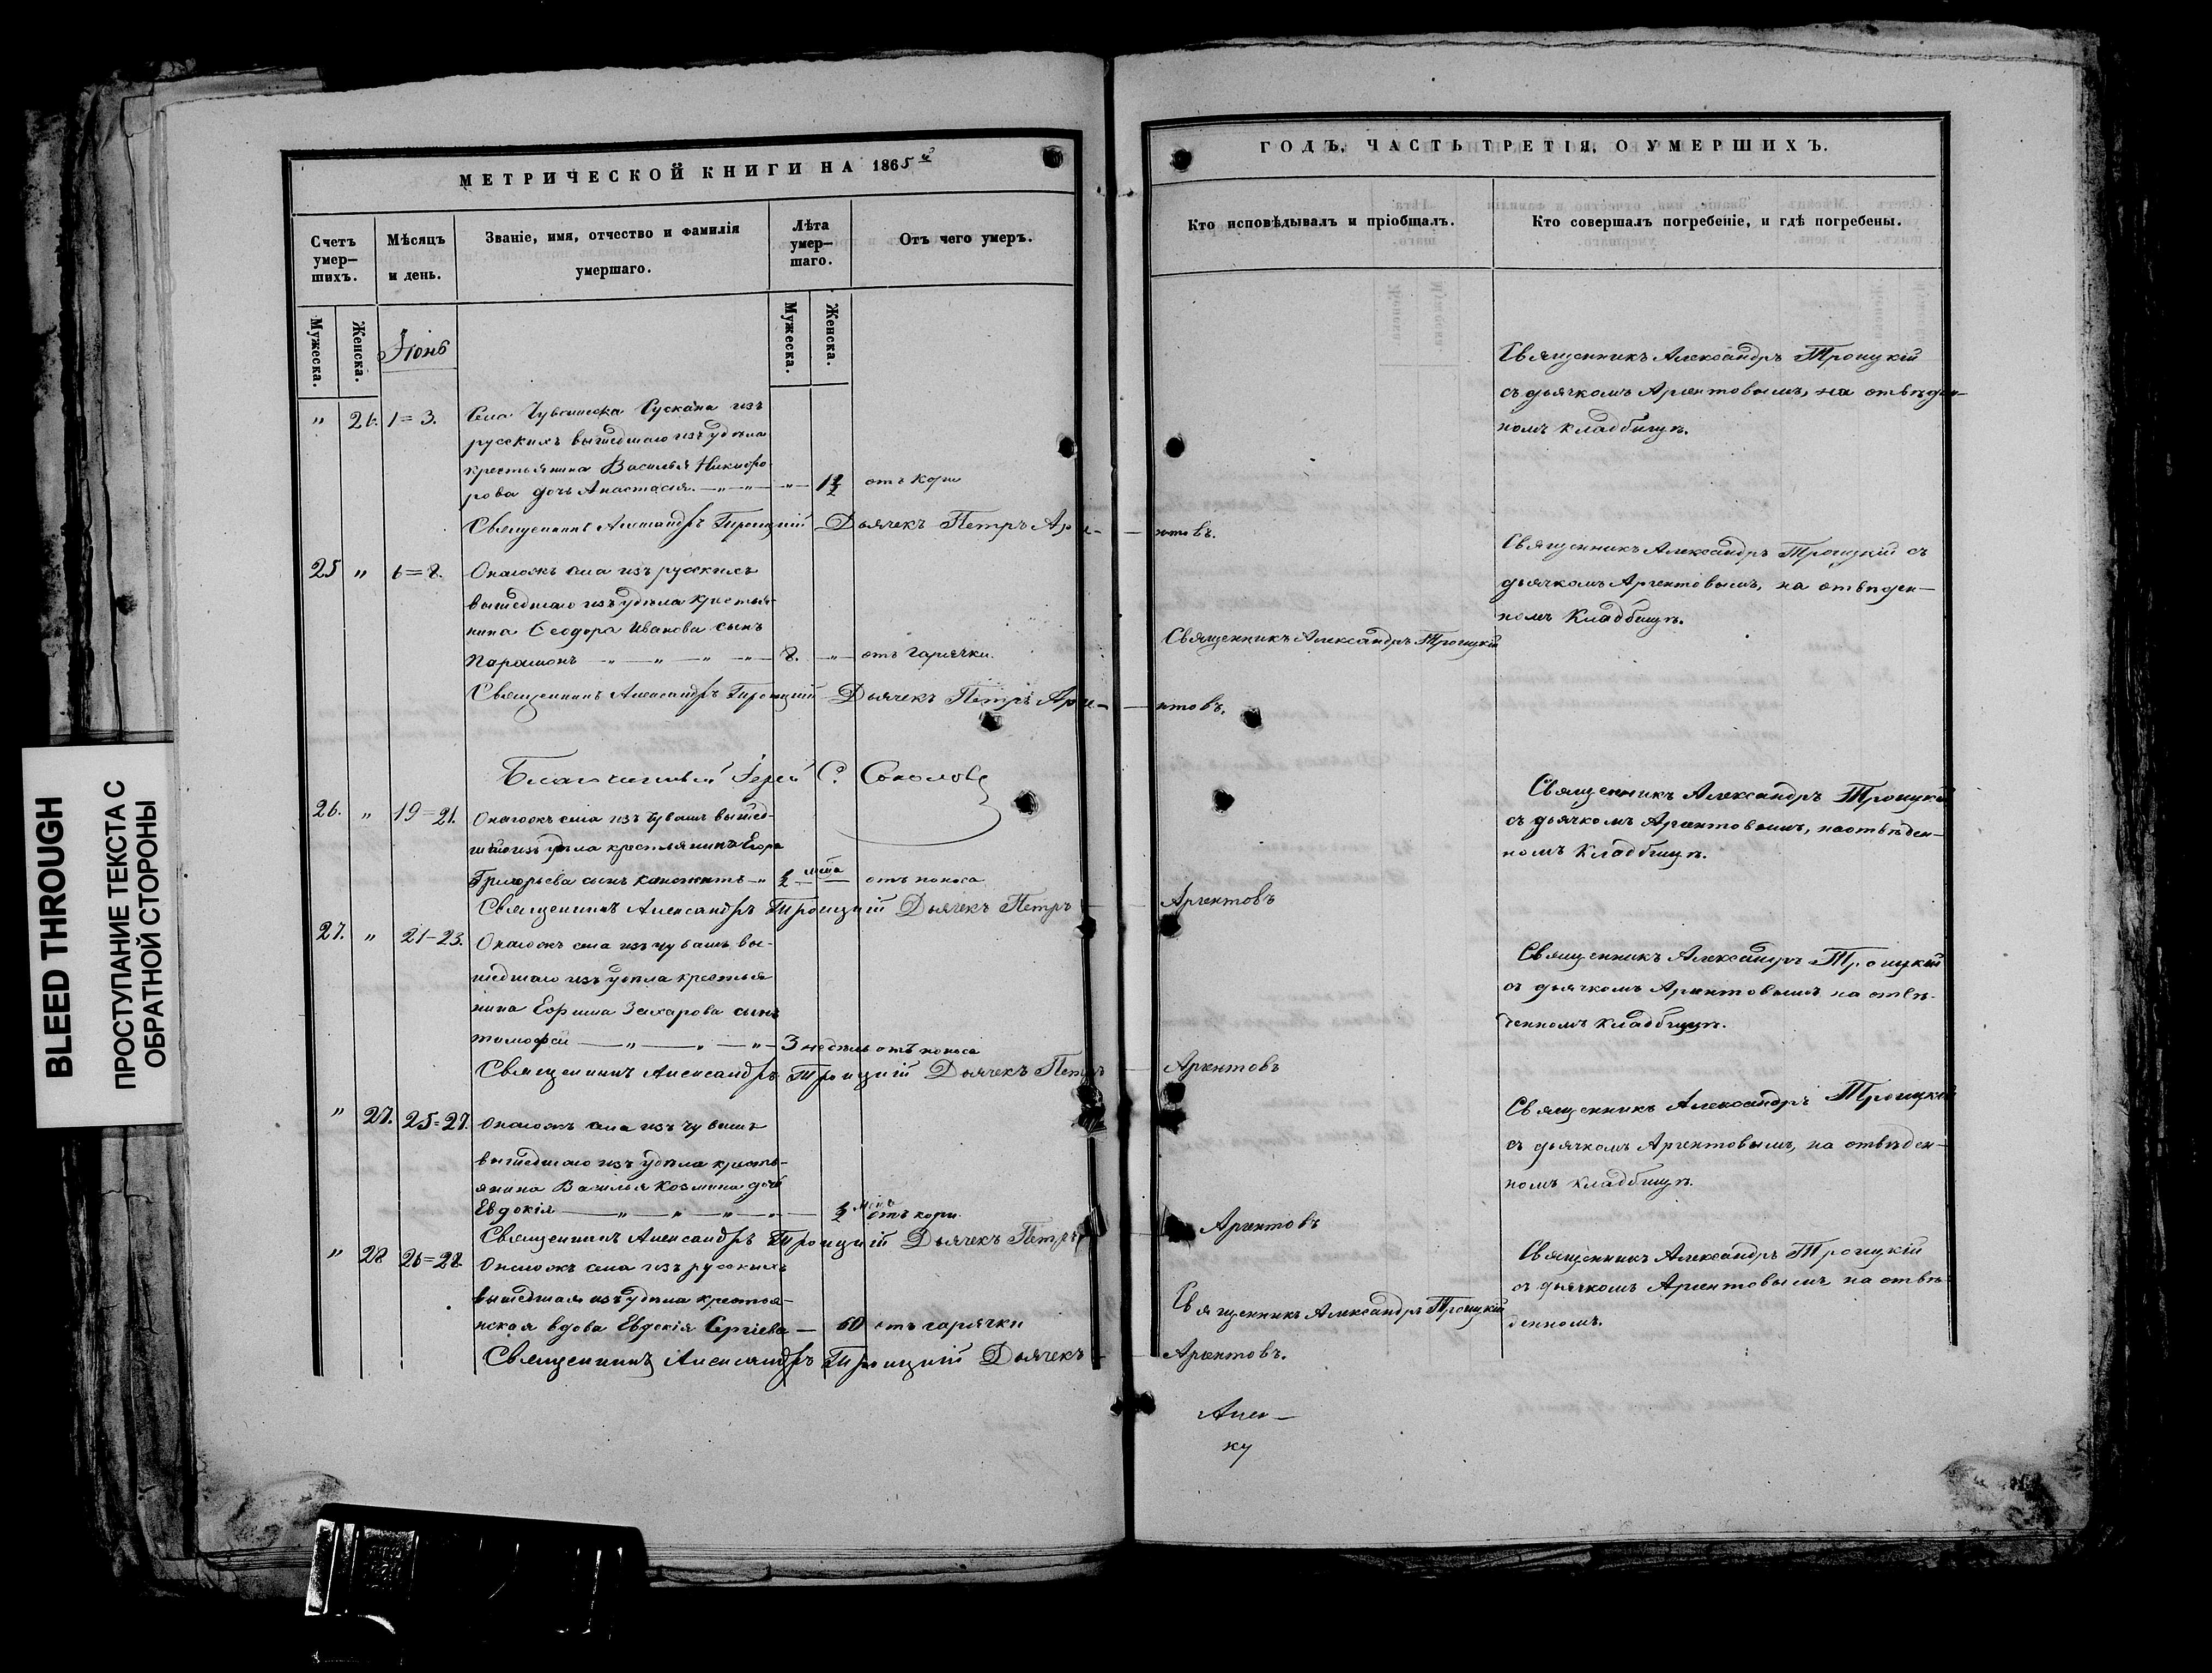 BLEED THROUGH
ПРОСТУПАНИЕ ТЕКСТА С
ОБРАТНОЙ СТОРОНЫ
МЕТРИЧЕСКОЙ КНИГИ НА 1865й
Счетъ умер-шихъ.
Мѣсяцъ и день.
Званіе, имя, отчество и фамилія
умершаго.
Лѣта умер-шаго.
Отъ чего умеръ.
Мужеска.
Женска.
Іюнь
Мужеска.
Женска.
" 26. 1=3. Села Чувашска Сускана изъ
русскихъ вышедшаго изъ удѣла
крестьянина Василья Никифо-
рова дочь Анастасія. — " — " — " — 1½ отъ кори
Священникъ Александръ Троицкій Дьячекъ Петръ Арге-
25 " 6=8. Онагожъ села изъ русскихъ
вышедшаго изъ удѣла крестья-
нина Ѳеодора Иванова сынъ
Парамонъ — " — " — " — " — 8. — " — отъ горячки.
Священникъ Александръ Троицкій Дьячекъ Петръ Арге-
Благочинный Іерей С. Соколовъ
26. " 19=21. Онагожъ села изъ чувашъ вышед-
шаго изъ удѣла крестьянина Егора
Григорьева сынъ — " ½ отъ поноса
Священникъ Александръ Троицкій Дьячекъ Петръ
27. " 21-23. Онагожъ села изъ чувашъ вы-
шедшаго изъ удѣла крестья
нина Ефима Захарова сынъ
тимофей — " — " — " — 3 недѣль отъ поноса
Священникъ Александръ Троицкій Дьячекъ Петръ
" 27. 25=27. Онагожъ села изъ чувашъ
вышедшаго изъ удѣла кресть-
янина Василья Козмина дочь
Евдокія — " — " — " — " — ½ отъ кори
Священникъ Александръ Троицкій Дьячекъ Петръ
" 28 26=28. Онагожъ села изъ русскихъ
вышедшая изъ удѣла крестья-
нская вдова Евдокія Сергіева — 60 отъ горячки
Священникъ Александръ Троицкій Дьячекъ
ГОДЪ, ЧАСТЬ ТРЕТІЯ, О УМЕРШИХЪ.
Кто исповѣдывалъ и пріобщалъ.
Кто совершалъ погребеніе, и гдѣ погребены.
Священникъ Александръ Троицкій
съ дьячкомъ Аргентовымъ, на отвѣден-
номъ кладбищѣ.
нтовъ.
Священникъ Александръ Троицкій съ
дьячкомъ Аргентовымъ, на отвѣден-
номъ Кладбищѣ.
Священникъ Александръ Троицкій
нтовъ.
Священникъ Александръ Троицкій
съ дьячкомъ Аргентовымъ, на отвѣден-
номъ Кладбищѣ.
Аргентовъ
Священникъ Александръ Троицкій
съ дьячкомъ Аргентовымъ на отвѣ-
денномъ кладбищѣ.
Аргентовъ
Священникъ Александръ Троицкій
съ дьячкомъ Аргентовымъ, на отвѣден-
номъ кладбищѣ.
Аргентовъ
Священникъ Александръ Троицкій
съ дьячкомъ Аргентовымъ на отвѣ-
денномъ.
Священникъ Александръ Троицкій
Аргентовъ.